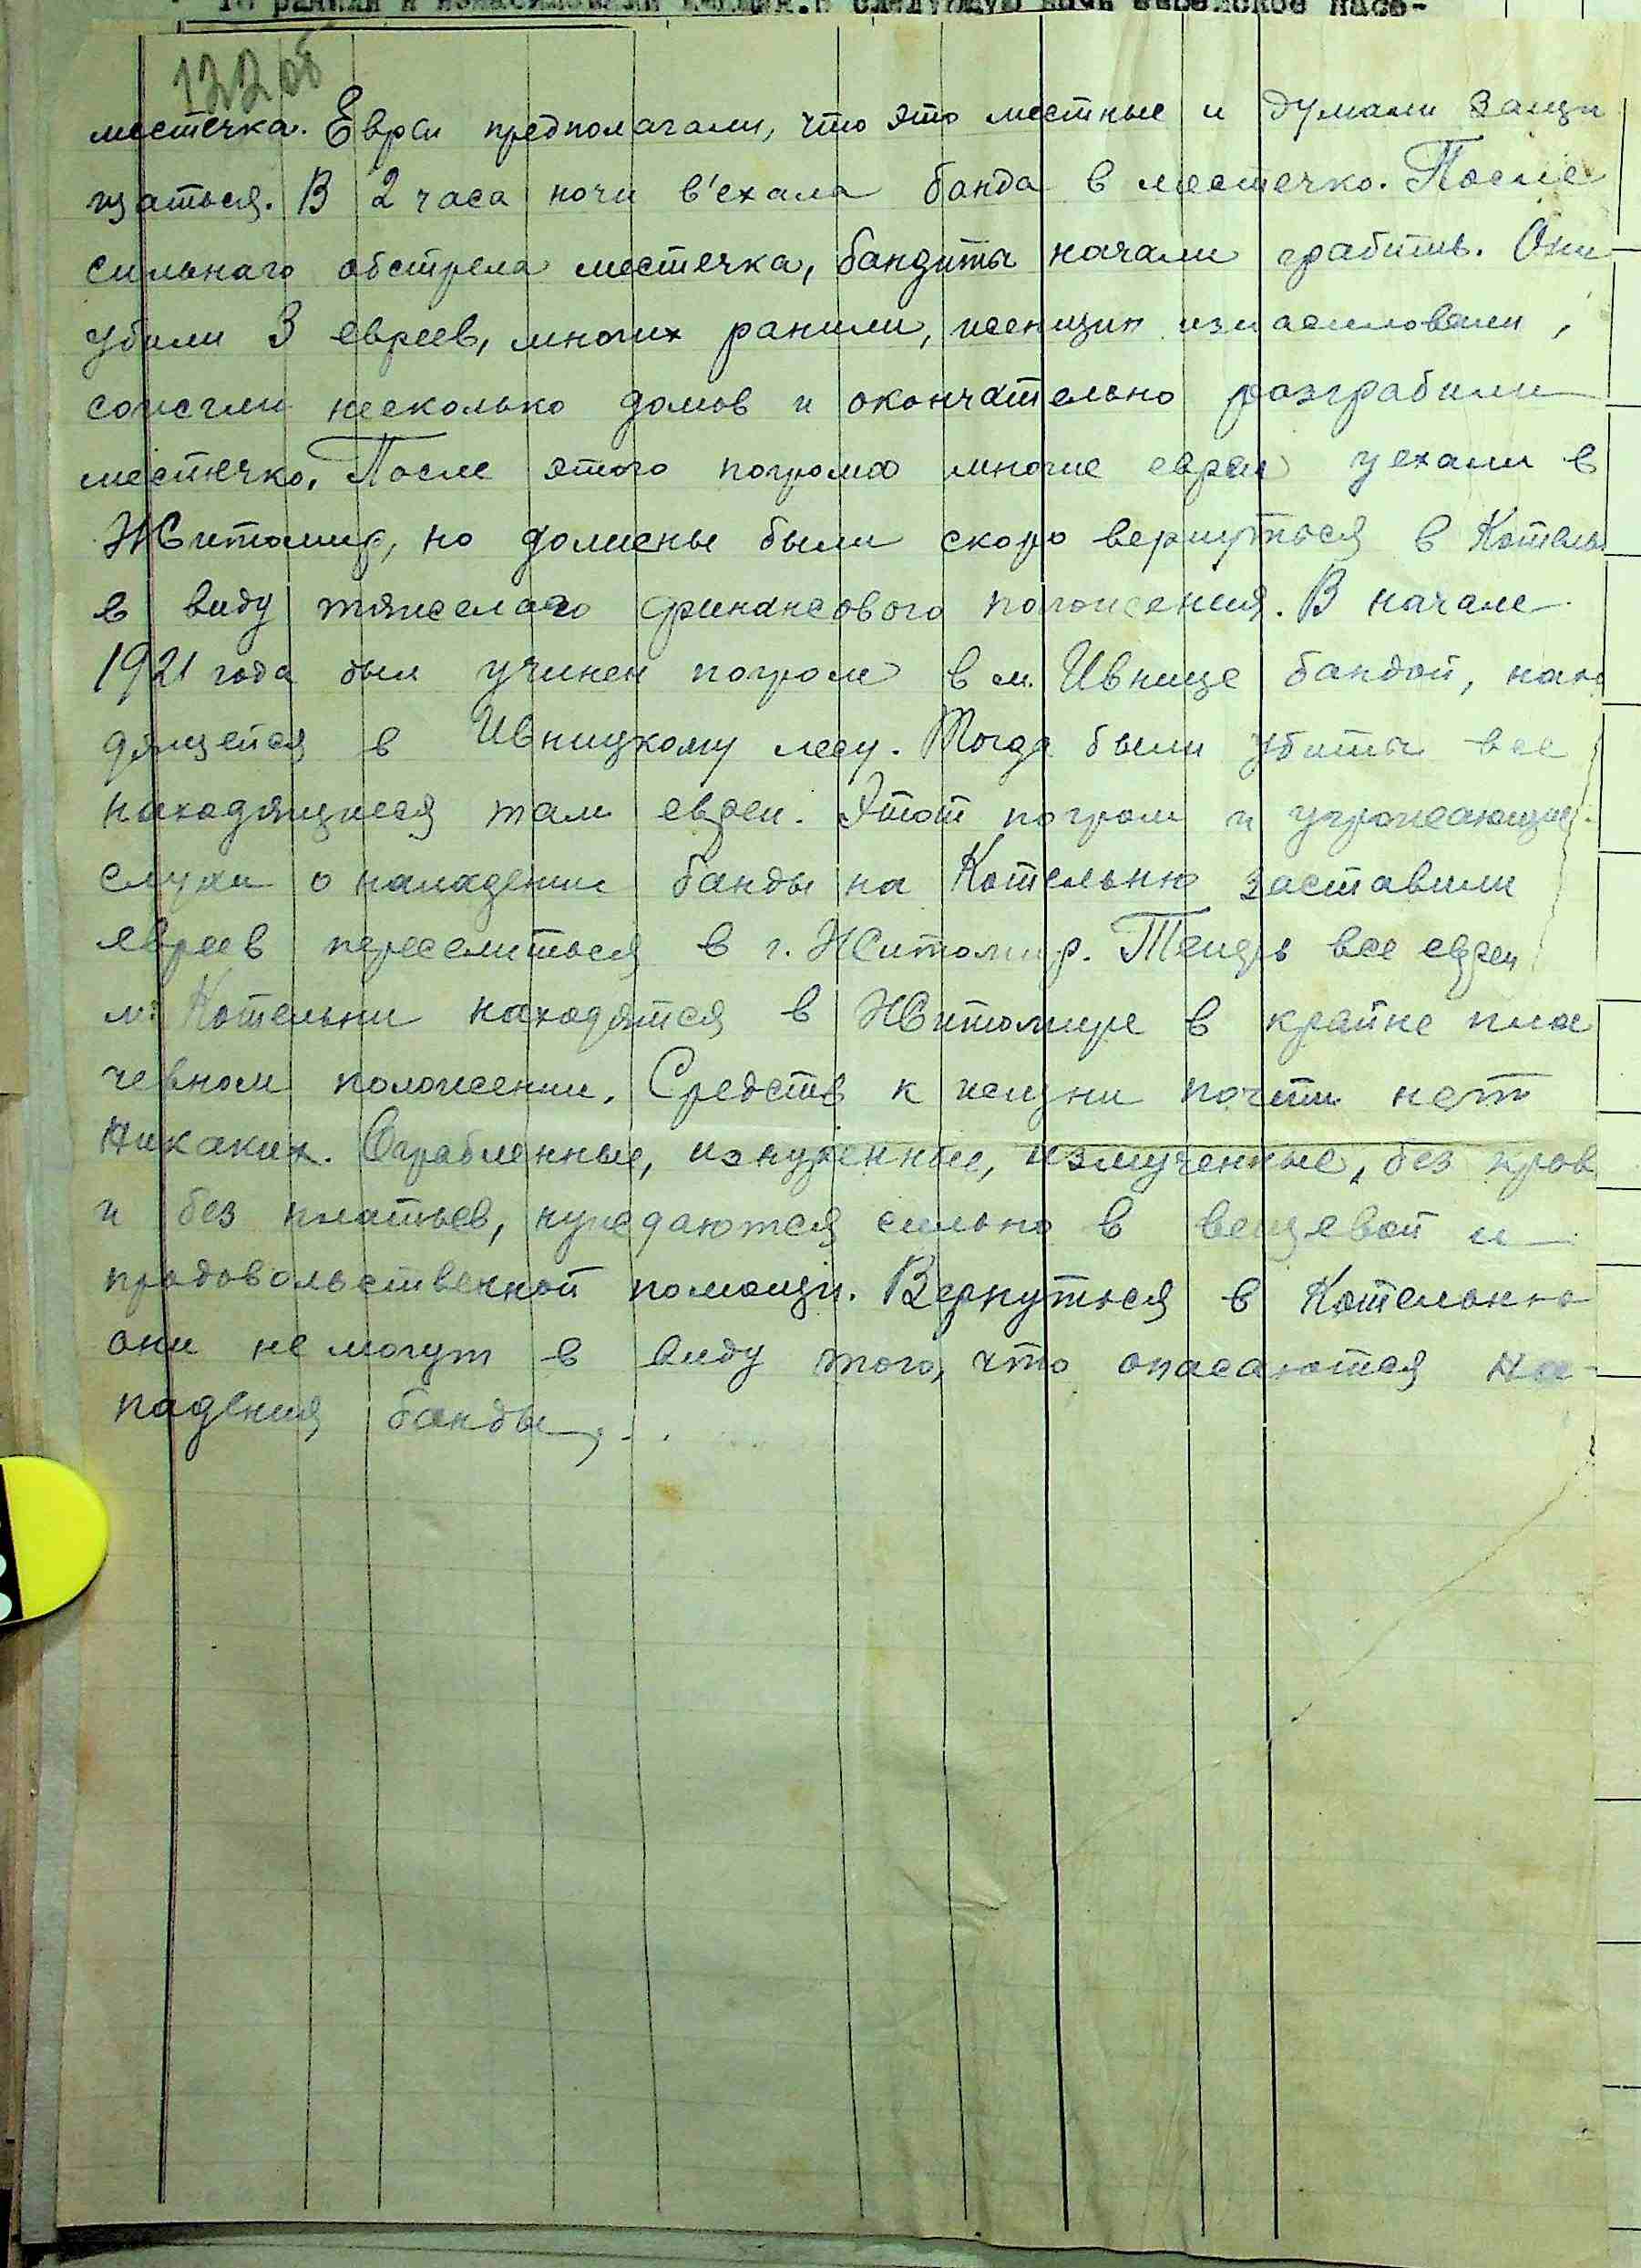 то ранили и изнасиловали женщин. В следующую ночь еврейское насе-
122об
местечка. Евреи предполагали, что это местные и думали защи
щаться. В 2 часа ночи в'ехала банда в местечко. После
сильнаго обстрела местечка, бандиты начали грабить. Они
убили 3 евреев, многих ранили, женщин изнасиловали,
сожгли несколько домов и окончательно разграбили
местечко. После этого погрома многие евреи уехали в
Житомир, но должены были скоро вернуться в Котель
в виду тяжелаго финансового положения. В начале
1921 года был учинен погром в м. Ивнице бандой, нахо
дящейся в Ивницкому лесу. Тогда были убиты все
находящиеся там евреи. Этот погром и угрожающие
слухи о нападении банды на Котельню заставили
евреев переселиться в г. Житомир. Теперь все евреи
м. Котельни находятся в Житомире в крайне пла
чевном положении. Средств к жизни почти нет
никаких. Ограбленные, изнуренные, измученные, без кров
и без платьев, нуждаются сильно в вещевой и
продовольственной помощи. Вернуться в Котельню
они не могут в виду того, что опасаются на-
падения банды...